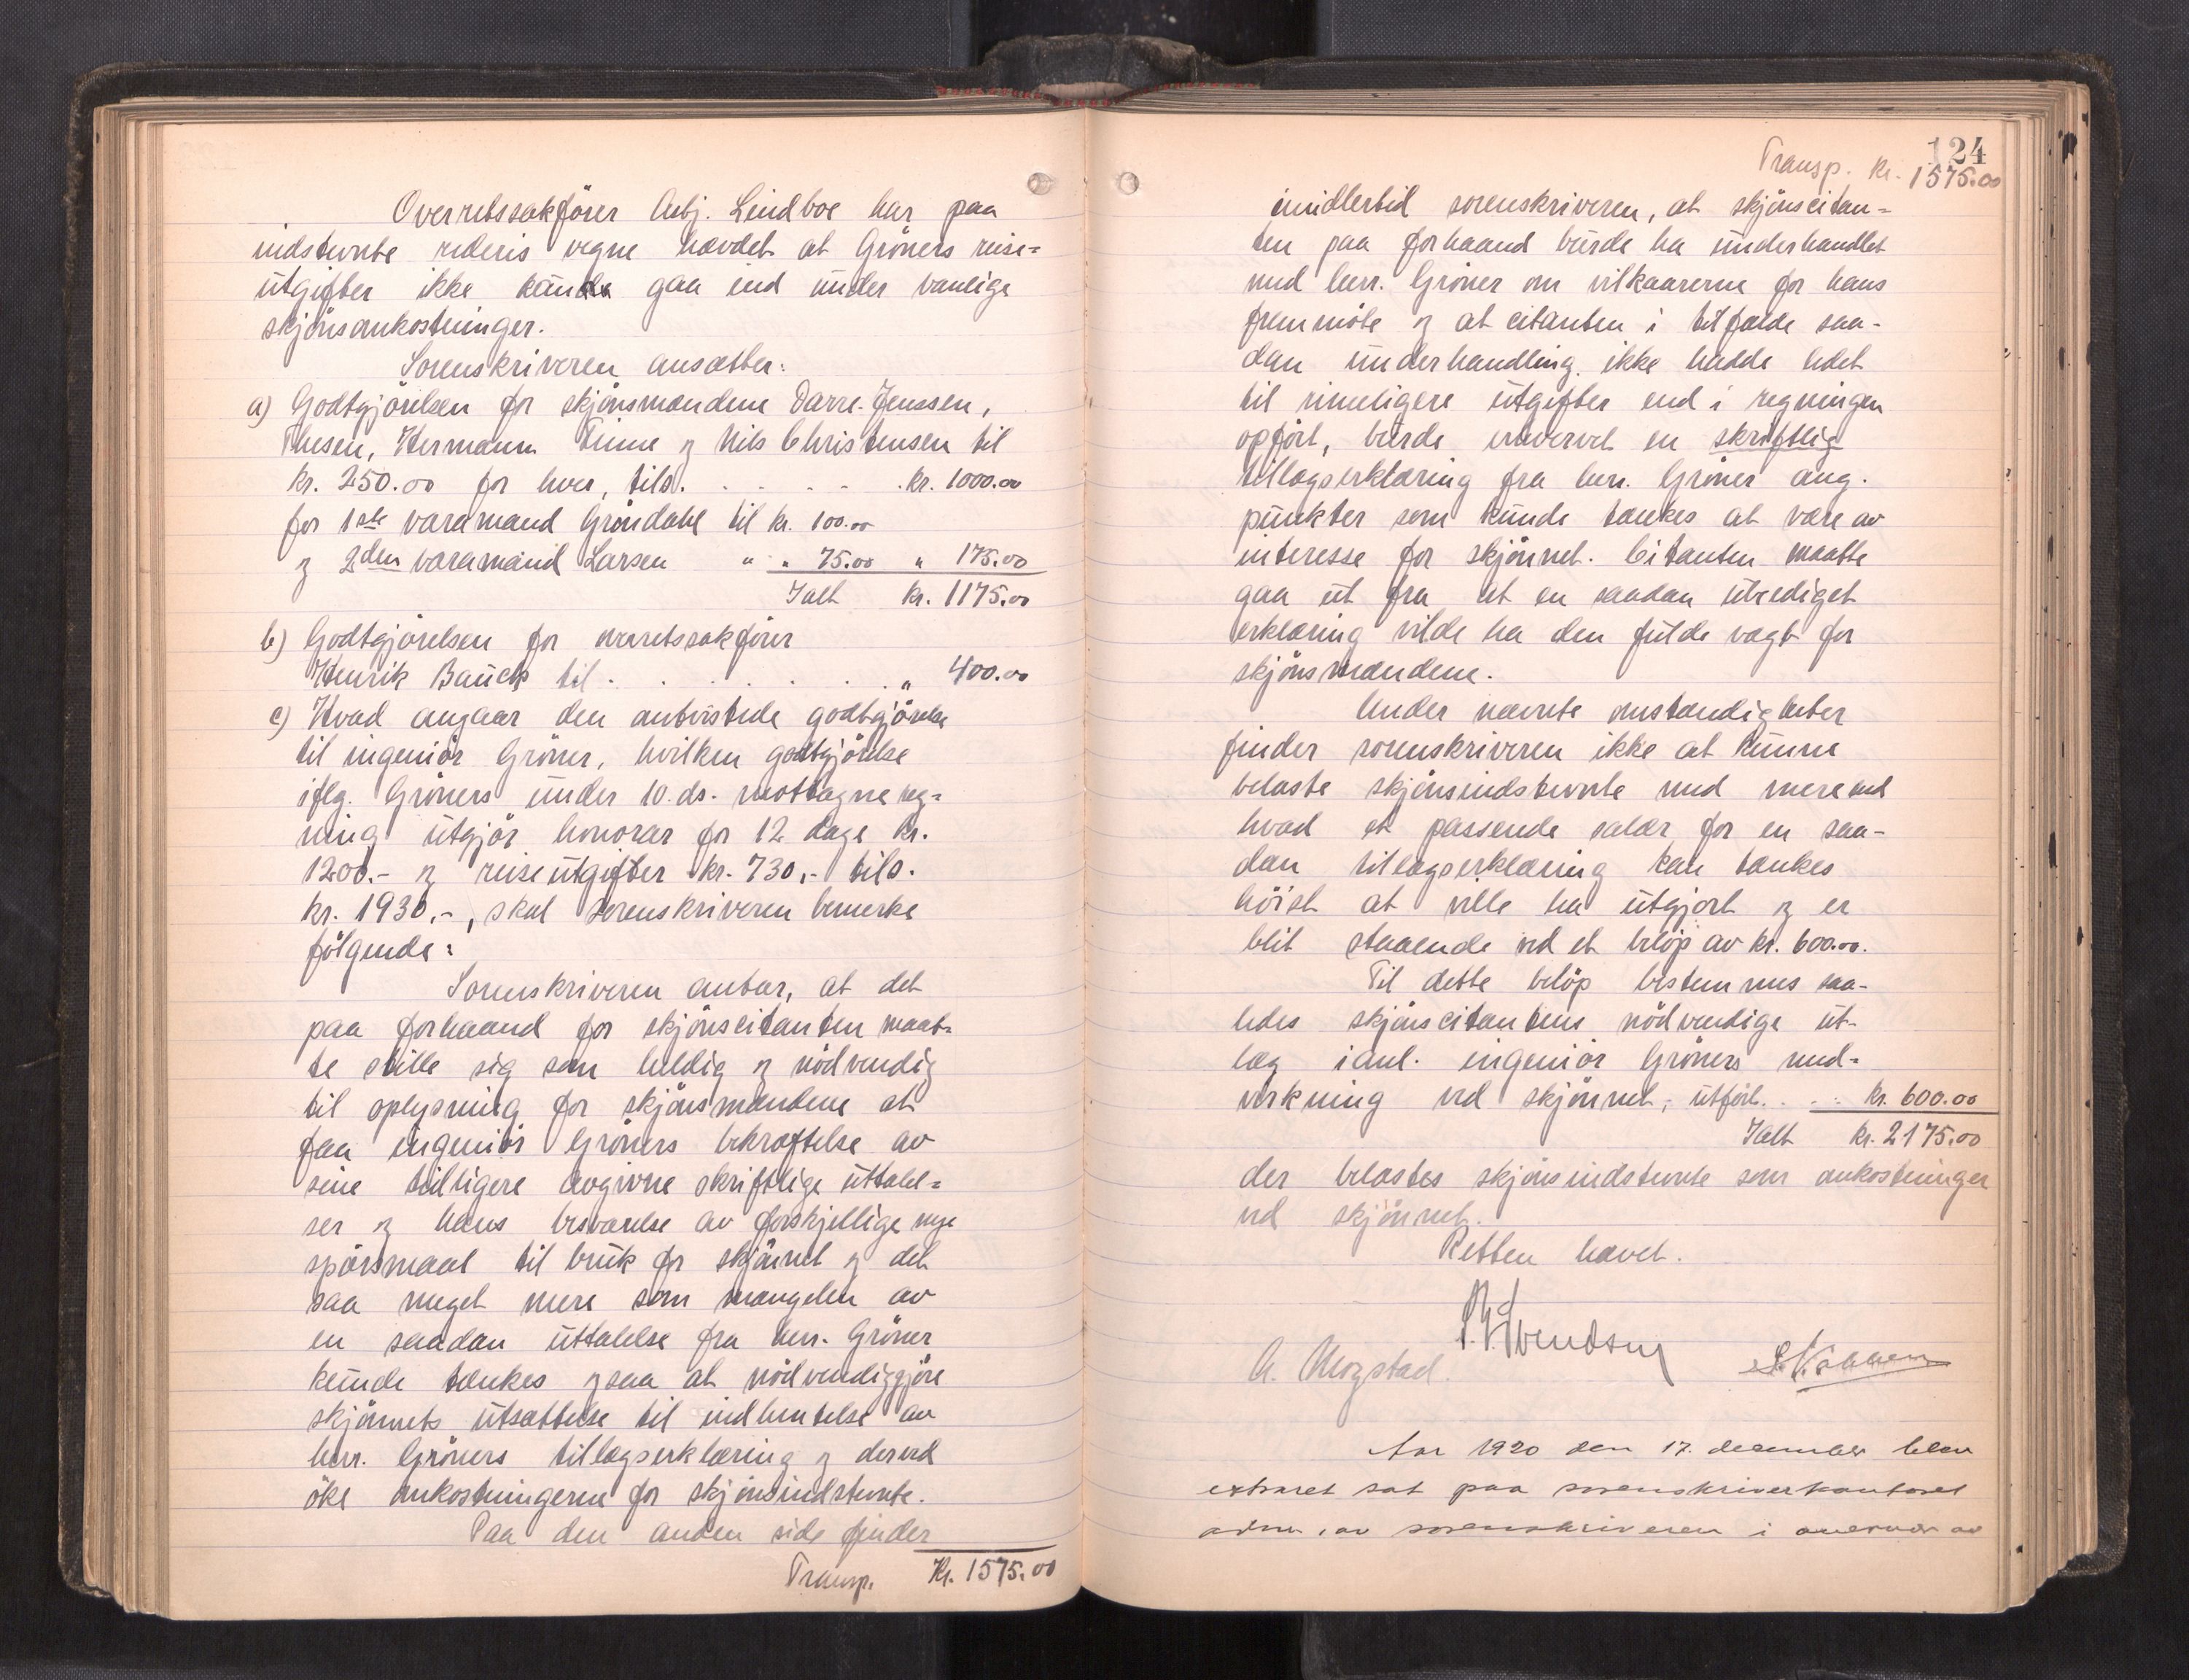 Overretssakförer Asbj. Lindboe har paa
indstevnte rederis vegne hævdet at Gröners reise=
utgifter ikke kunde gaa ind under vanlige
skjönsomkostninger.
Sorenskriveren ansætter:
a) Godtgjörelsen for skjönsmændene Darre-Jenssen,
Thesen, Hermann Finne og Nils Christensen til
kr. 250.00 for hver, tils. . . . . . kr. 1000.00
for 1ste varamand Gröndahl til kr. 100.00
og 2den varamand Larsen " " 75.00 " 175.00
Ialt kr. 1175.00
b) Godtgjörelsen for overretssakförer
Henrik Bauck til . . . . . . . " 400.00
c) Hvad angaar den antvistede godtgjörelse
til ingeniör Gröner, hvilken godtgjörelse
iflg. Gröners under 10. ds. mottagne reg=
ning utgjör honorar for 12 dage kr.
1200.- og reiseutgifter kr. 730,- tils.
kr. 1930,-, skal sorenskriveren bemerke
fölgende:
Sorenskriveren antar, at det
paa forhaand for skjönscitanten maat=
te stille sig som heldig og nödvendig
til oplysning for skjönsmændene at
faa ingeniör Gröners bekræftelse av
sine tidligere avgivne skriftlige uttalel=
ser og hans besvarelse av forskjellige nye
spörsmaal til bruk for skjönnet og det
saa meget mere som mangelen av
en saadan uttalelse fra herr. Gröner
kunde tænkes ogsaa at nödvendiggjöre
skjönnets utsættelse til indhentelse av
herr. Gröners tillægserklæring og derved
öke omkostningerne for skjönsindstevnte.
Paa den anden side finder
Transp. Kr. 1575.00
124
Transp. kr. 1575.00
imidlertid sorenskriveren, at skjönscitan=
ten paa forhaand burde ha underhandlet
med herr. Gröner om vilkaarerne for hans
fremmöte og at citanten i tilfælde saa-
dan underhandling ikke hadde ledet
til rimeligere utgifter end i regningen
opfört, burde erhvervet en skriftlig
tillægserklæring fra herr. Gröner ang.
punkter som kunde tænkes at være av
interesse for skjönnet. Citanten maatte
gaa ut fra at en saadan utrediget
erklæring vilde ha den fulde vægt for
skjönsmændene.
Under nævnte omstændigheter
finder sorenskriveren ikke at kunne
belaste skjönsindstevnte med mere end
hvad et passende salær for en saa-
dan tillægserklæring kan tænkes
höist at ville ha utgjort og er
blit staaende ved et belöp av kr. 600.00.
Til dette belöp bestemmes saa-
ledes skjönscitantens nödvendige ut-
læg ianl. ingeniör Gröners med=
virkning ved skjönnet, utfört. . . : kr. 600.00
Ialt kr. 2175.00
der belastes skjönsindstevnte som omkostninger
ved skjönnet.
Retten hævet.
Svendsen
A. Mogstad.
Aar 1920 den 17. december blev
extraret sat paa sorenskriverkontoret
adm. av sorenskriveren i overvær av